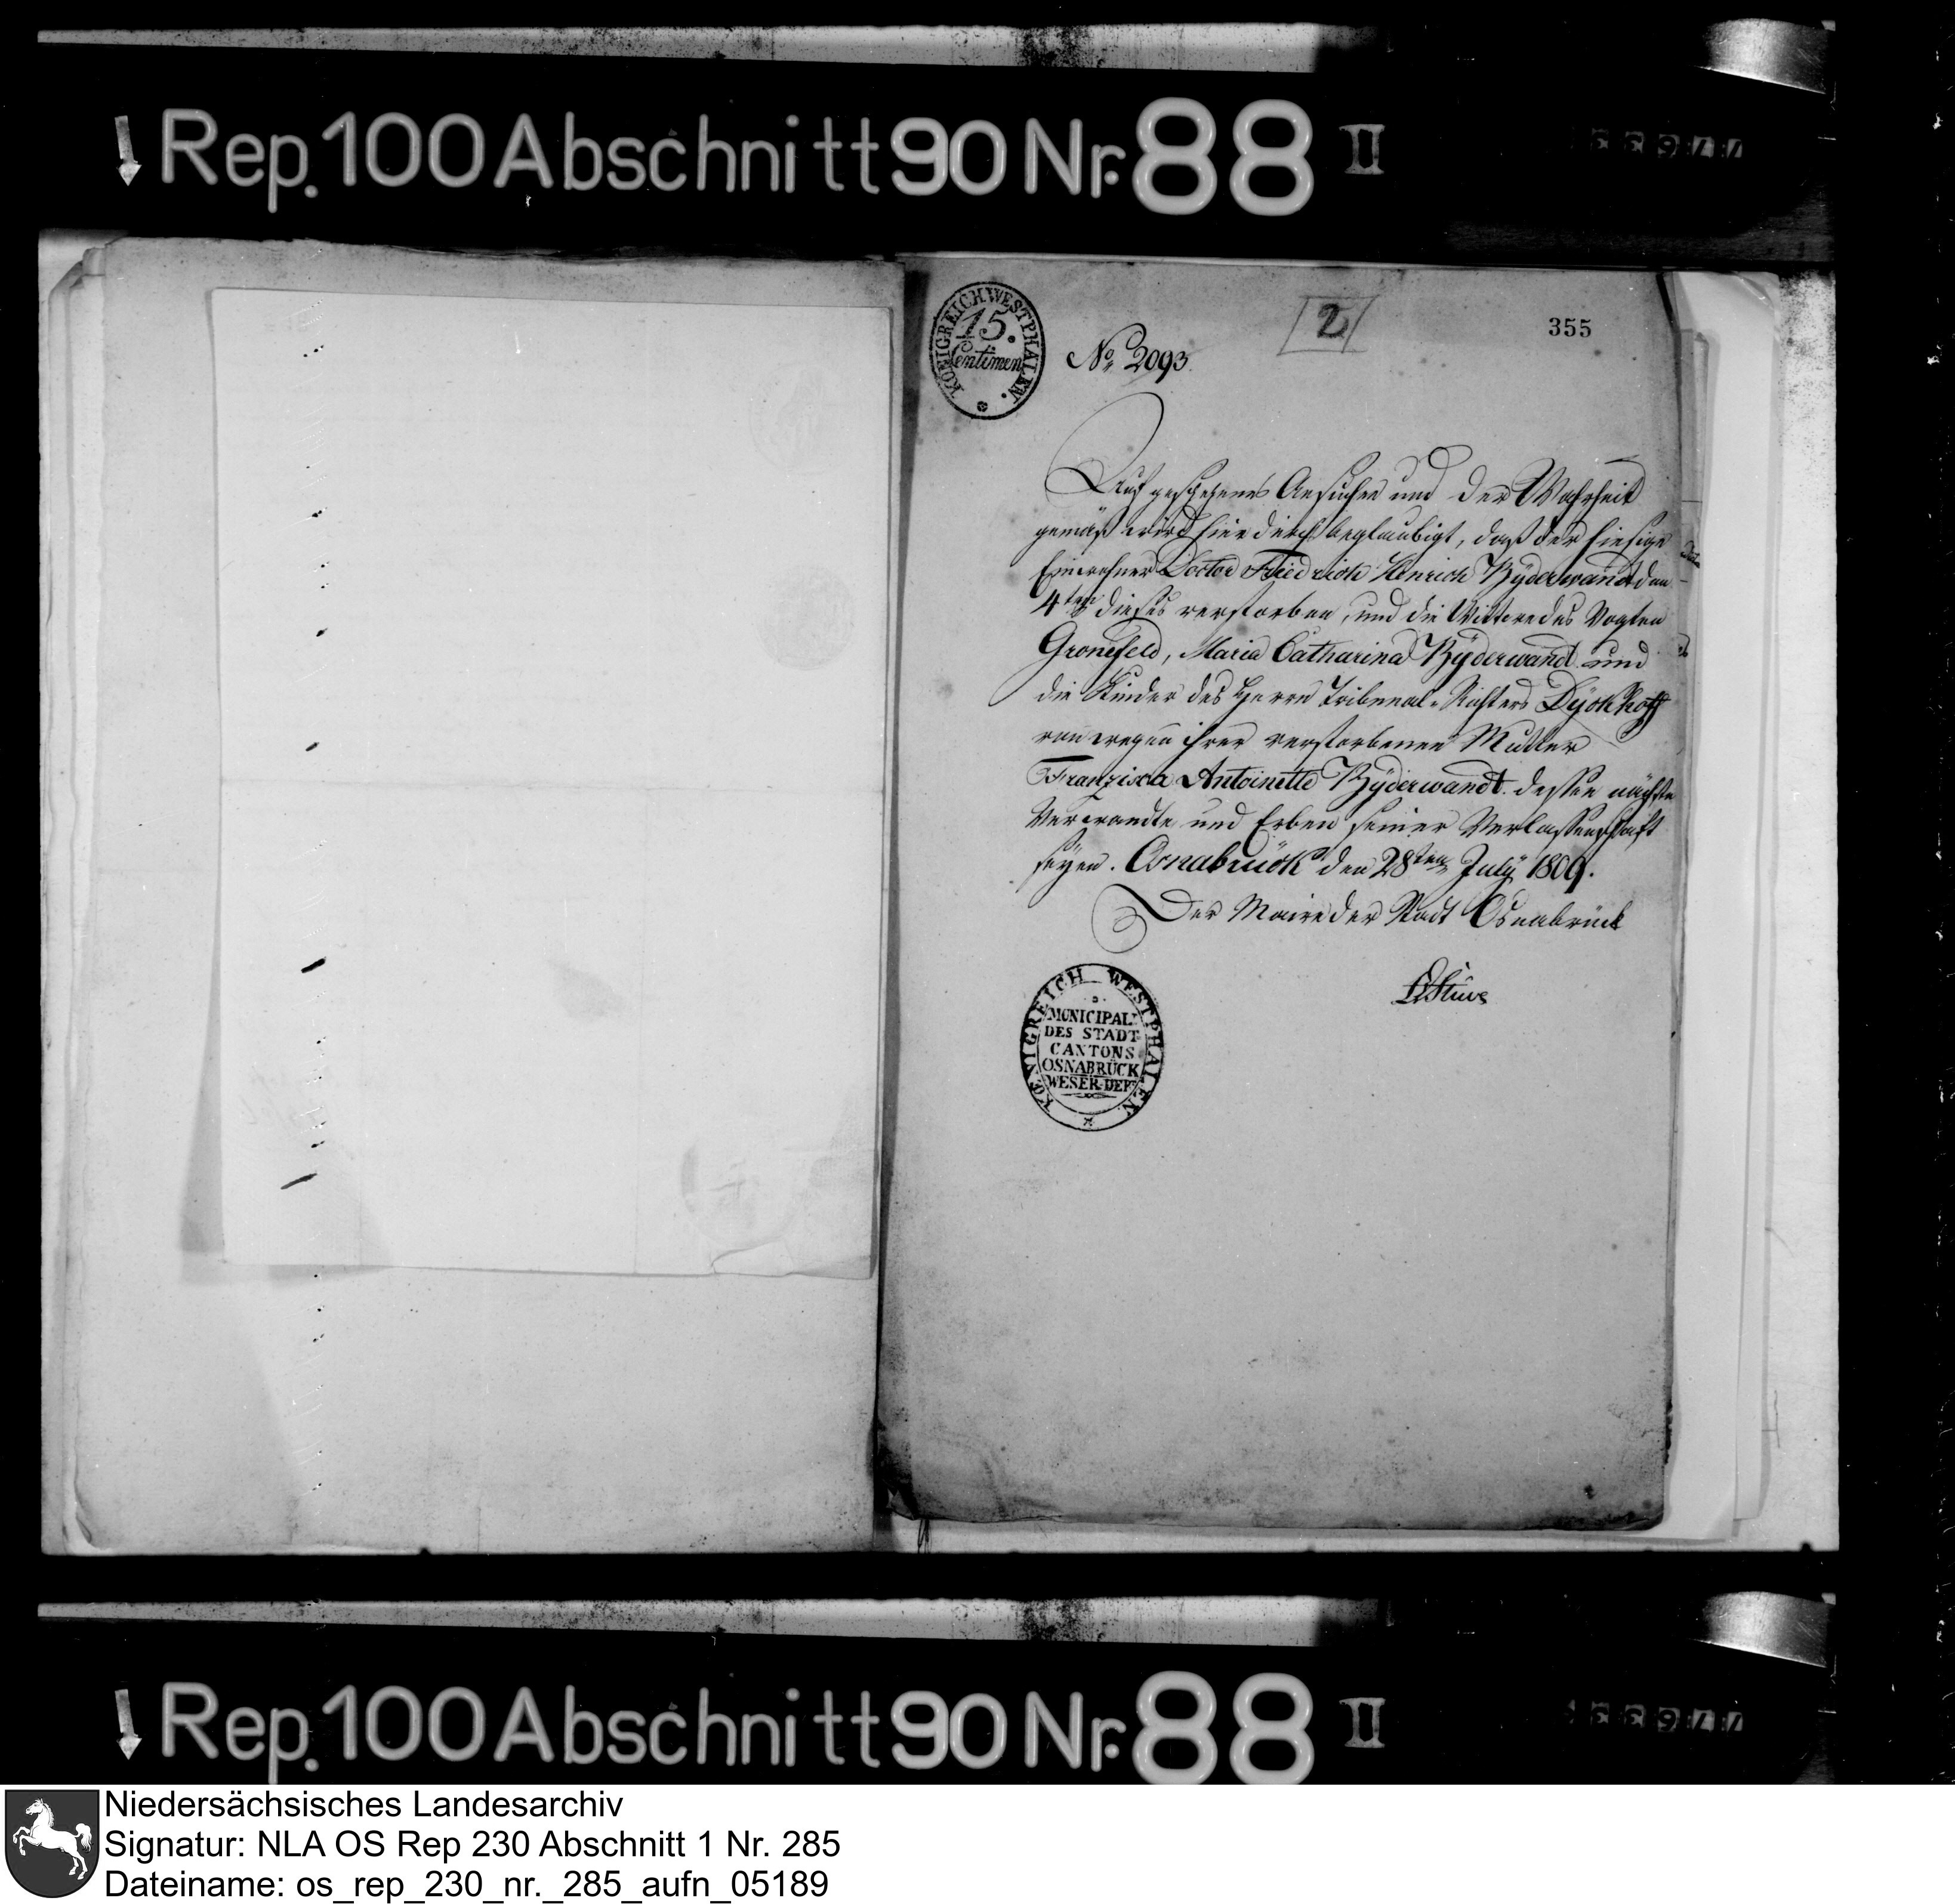 Rep. 100 Abschnitt 90 Nr. 88 II
KÖNIGREICH WESTPHALEN.
15.
Centimen
No. 2093.
2
355
Auf geschehenes Ansuchen und der Wahrheit
gemäß wird hierdurch beglaubigt, daß der hiesige
Einwohner Doctor Friedrich Henrich Byderwandt den
4ten dieses verstorben, und die Wittwe des Vogten
Gronefeld, Maria Catharina Byderwandt und
die Kinder des Herrn Tribunal-Richters Dyckhoff
von wegen ihrer verstorbenen Mutter
Franzisca Antoinette Byderwandt dessen nächste
Verwandte und Erben seiner Verlassenschaft
seyen. Osnabrück den 28ten July 1809.
Der Maire der Stadt Osnabrück
Stüve
KŒNIGREICH WESTPHALEN
MUNICIPALT.
DES STADT
CANTONS
OSNABRÜCK
WESER-DEPT
Rep. 100 Abschnitt 90 Nr. 88 II
Niedersächsisches Landesarchiv
Signatur: NLA OS Rep 230 Abschnitt 1 Nr. 285
Dateiname: os_rep_230_nr._285_aufn_05189